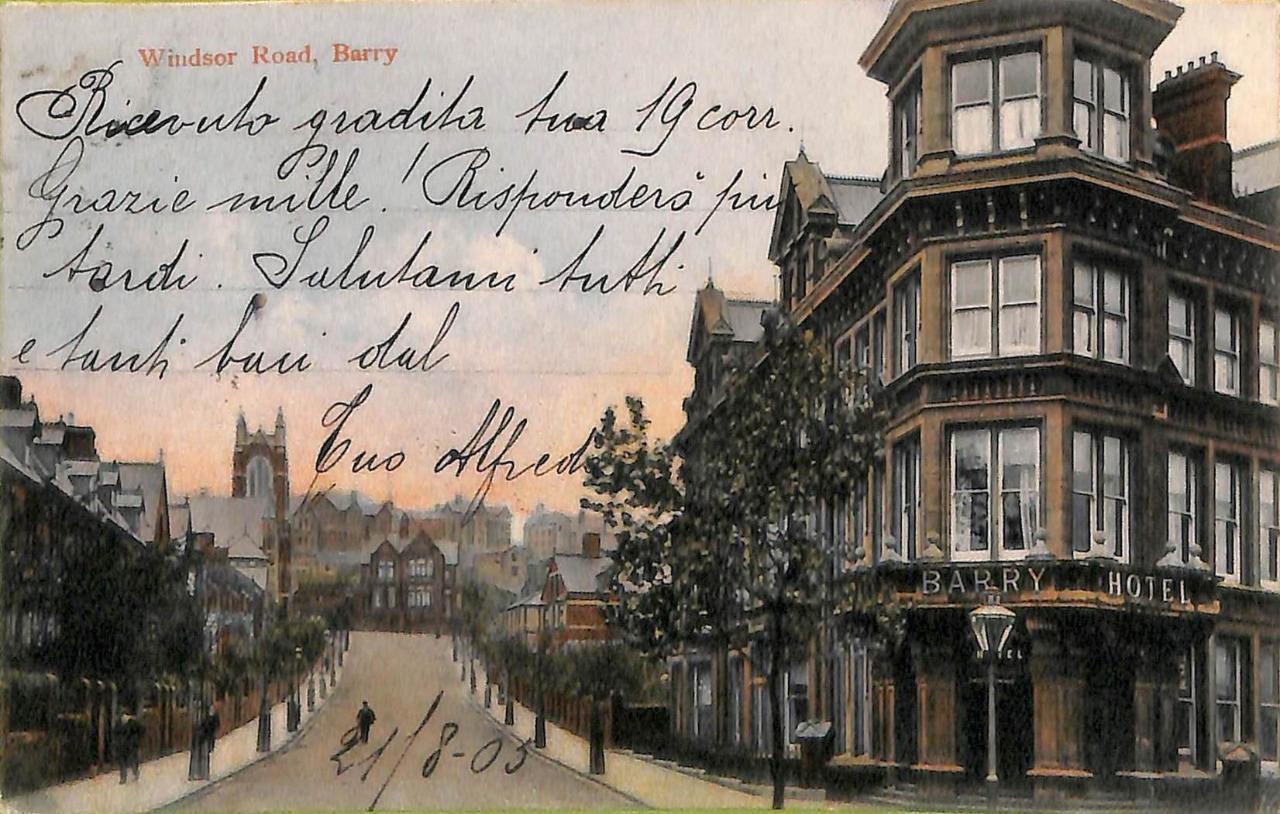 Windsor Road, Barry
Ricevuto gradita tua 19 corr.
Grazie mille! Risponderò piu
tardi. Salutami tutti
e tanti baci dal
Tuo Alfred
BARRY HOTEL
21/8-05